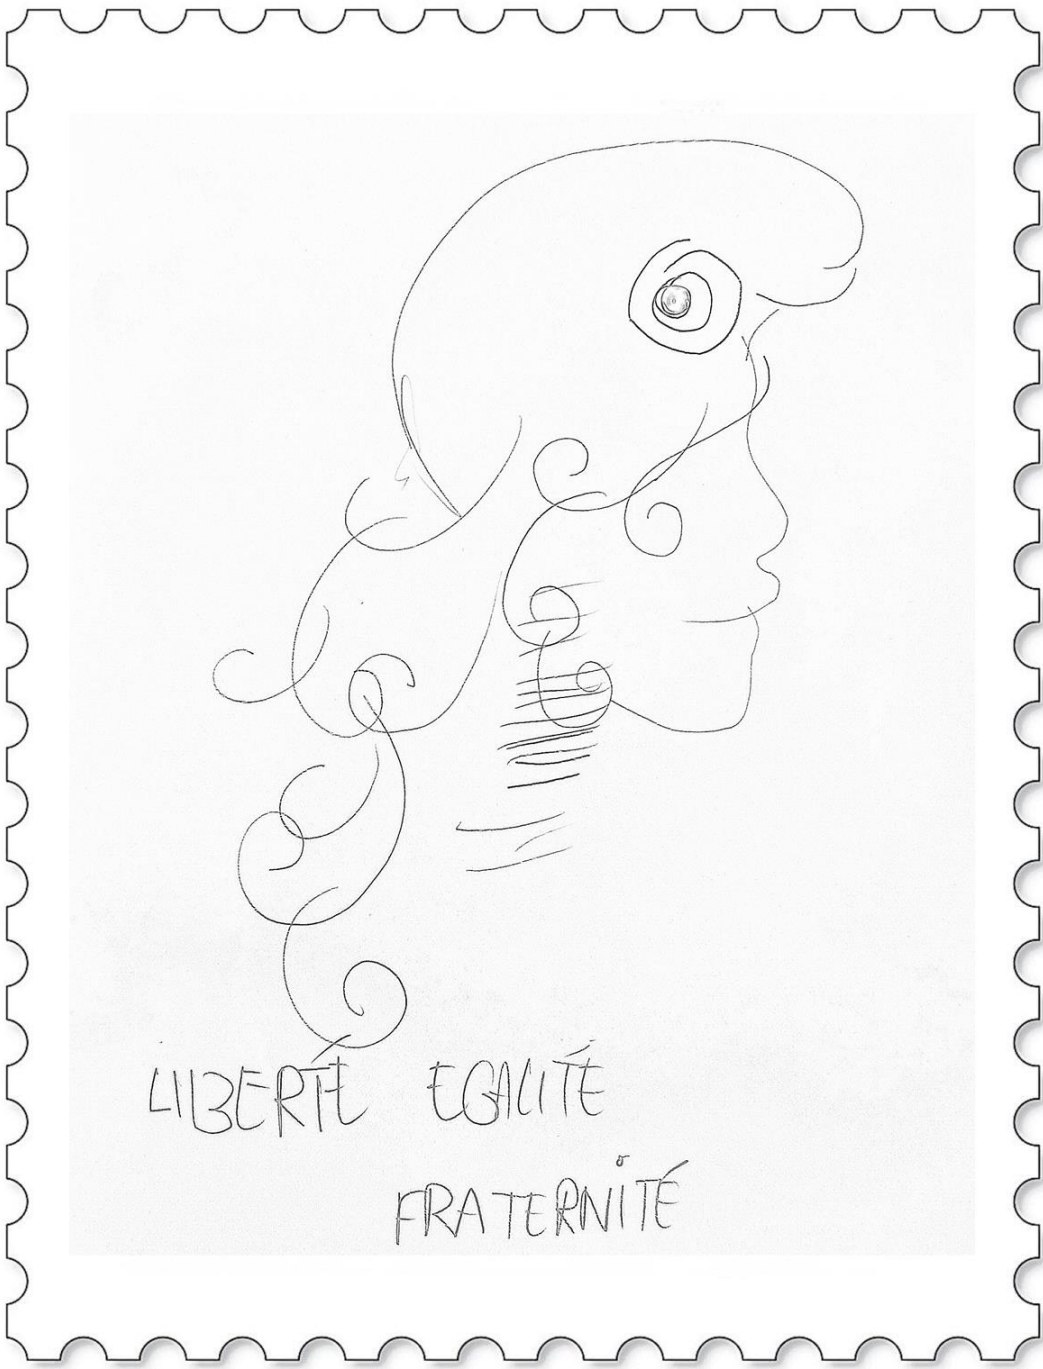 LIBERTÉ EGALITÉ
FRATERNiTÉ